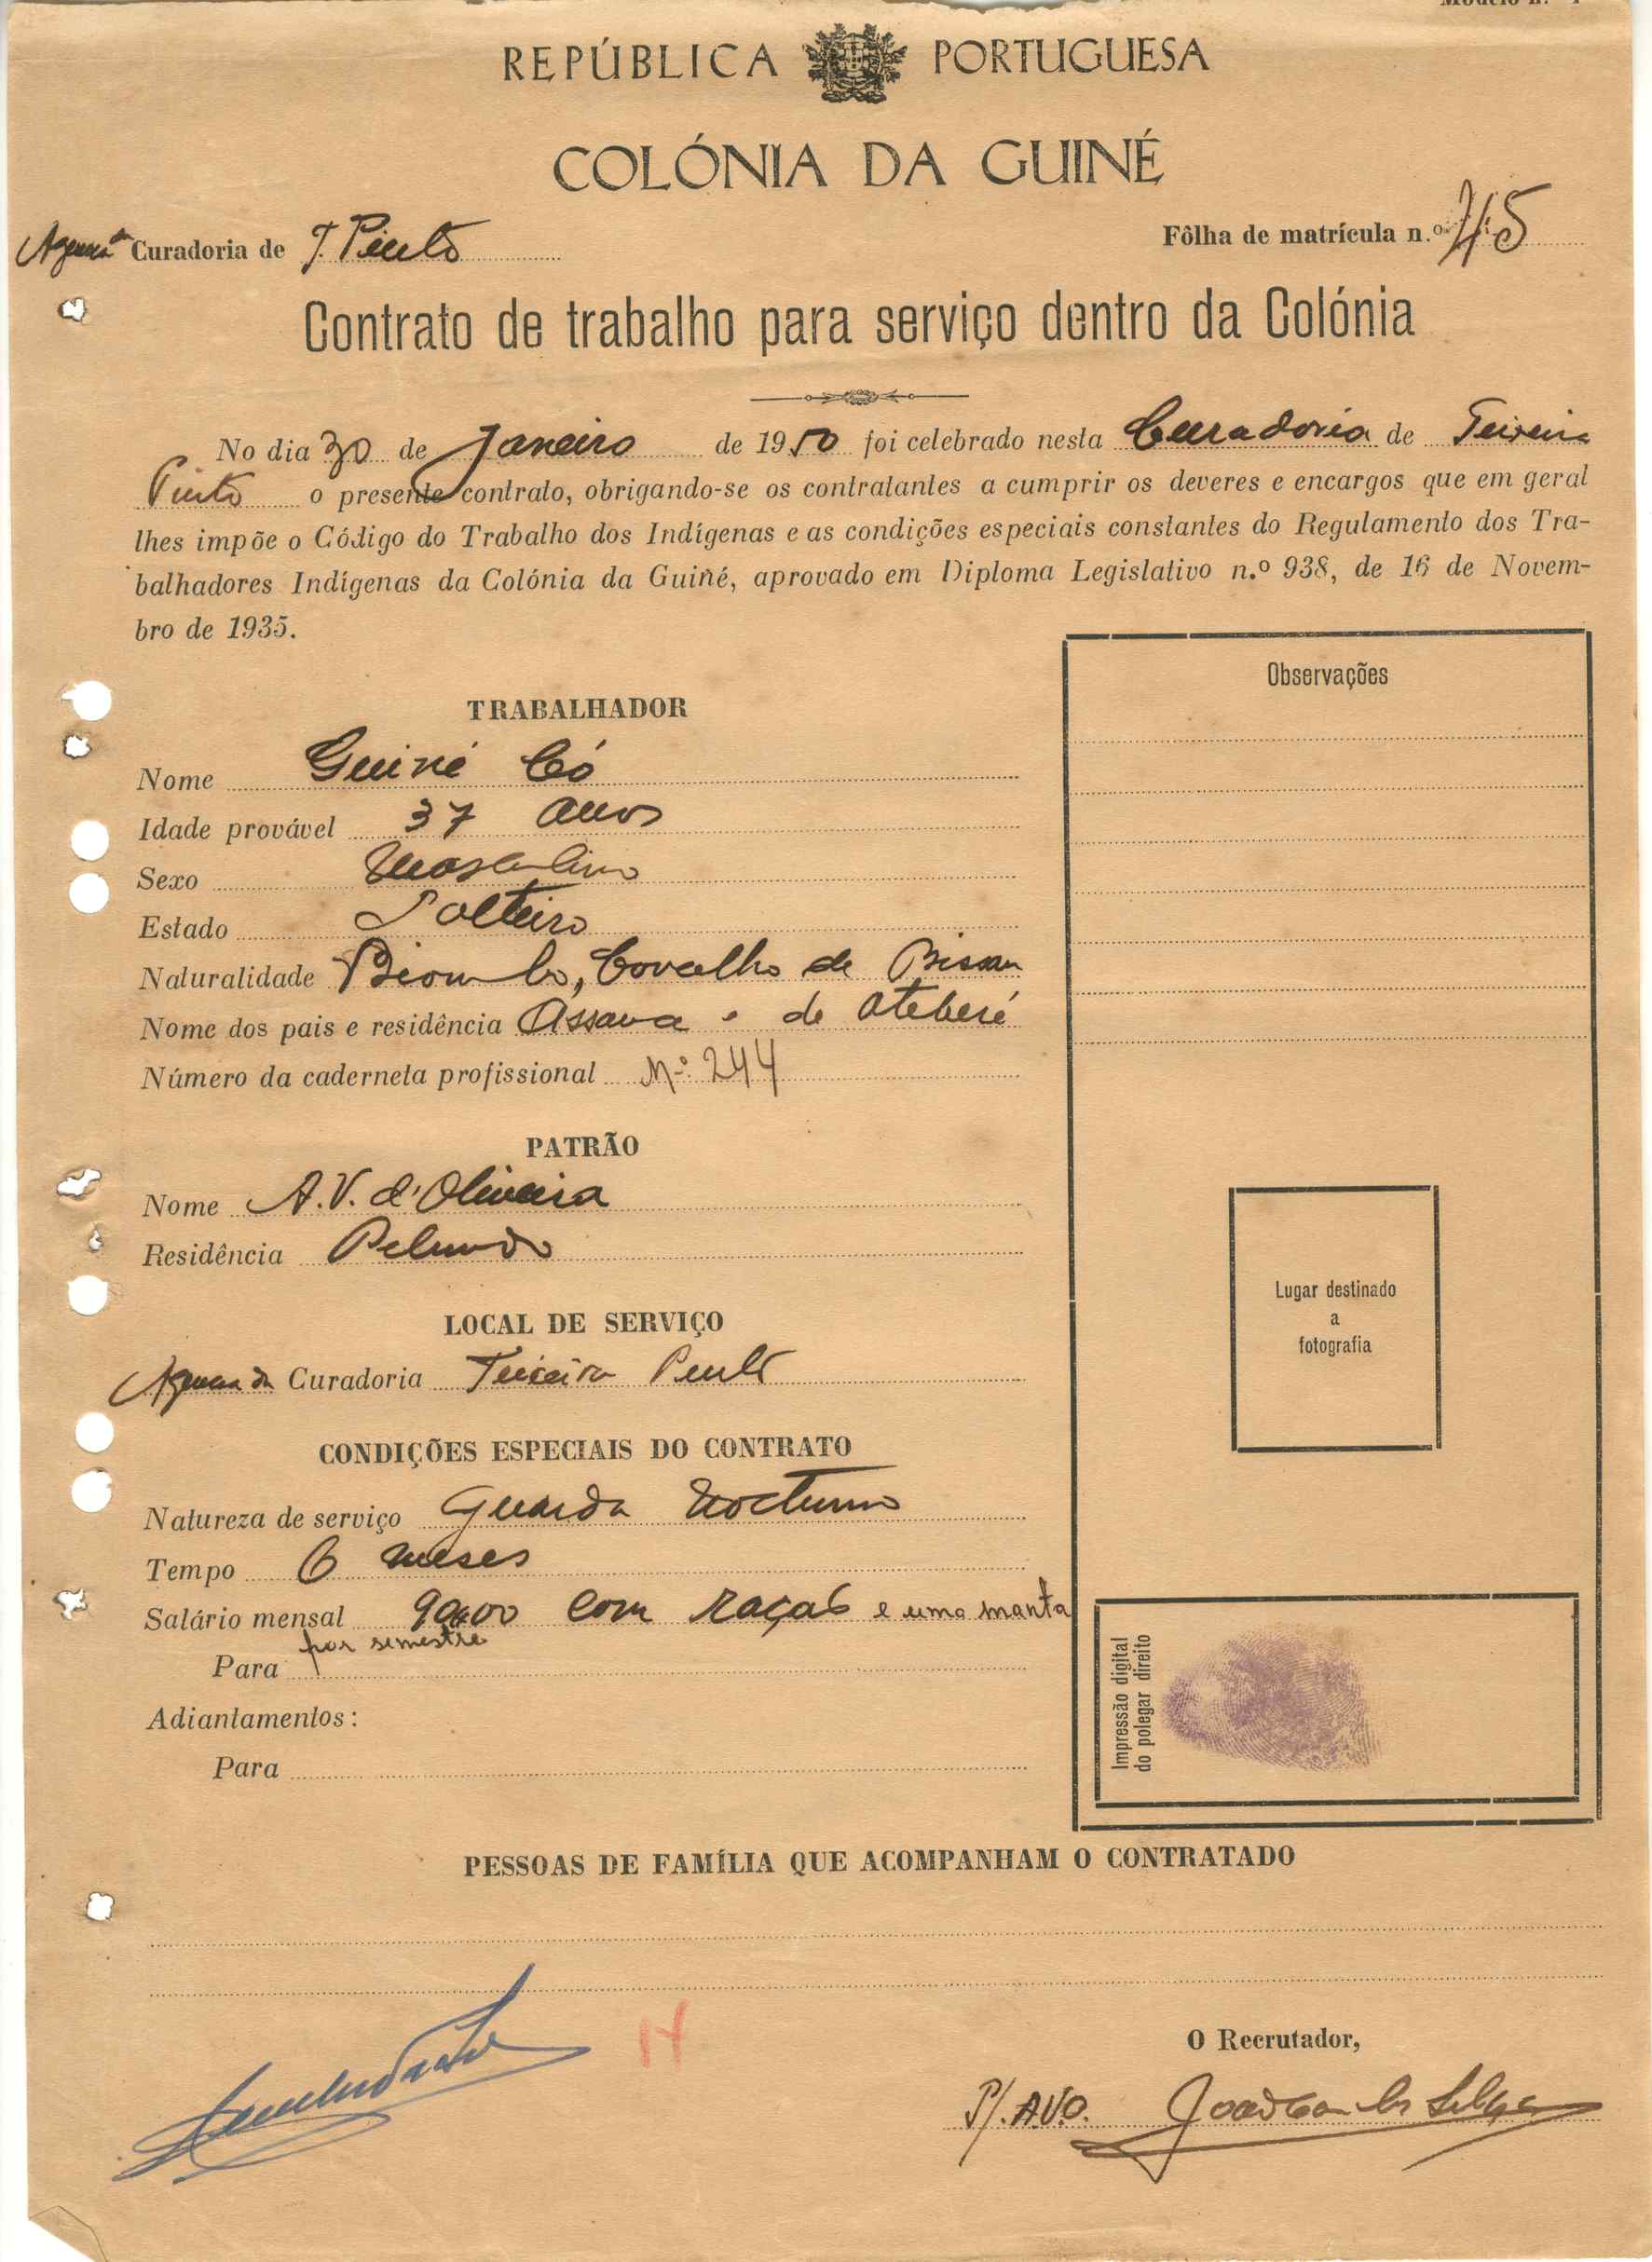 REPÚBLICA PORTUGUESA
COLÓNIA DA GUINÉ
Curadoria de T. Pinto
Fôlha de matrícula n.º 45
Contrato de trabalho para serviço dentro da Colónia
No dia 30 de Janeiro de 1950 foi celebrado nesta Curadoria de Teixeira
Pinto o presente contrato, obrigando-se os contratantes a cumprir os deveres e encargos que em geral
lhes impõe o Código do Trabalho dos Indígenas e as condições especiais constantes do Regulamento dos Tra-
balhadores Indígenas da Colónia da Guiné, aprovado em Diploma Legislativo n.º 938, de 16 de Novem-
bro de 1935.
Observações
TRABALHADOR
Nome Guiné Có
Idade provável 37 anos
Sexo Masculino
Estado Solteiro
Naturalidade Biombo, Concelho de Bissau
Nome dos pais e residência Assana e de Oteberé
Número da caderneta profissional N.º 244
PATRÃO
Nome A.V. d'Oliveira
Residência Pelundo
LOCAL DE SERVIÇO
Curadoria Teixeira Pinto
Lugar destinado
a
fotografia
CONDIÇÕES ESPECIAIS DO CONTRATO
Natureza de serviço Guarda Nocturno
Tempo 6 meses
Salário mensal 90$00 com ração e uma manta
por semestre
Para
Adiantamentos:
Para
Impressão digital
do polegar direito
PESSOAS DE FAMÍLIA QUE ACOMPANHAM O CONTRATADO
14
O Recrutador,
P/. A.V.O.